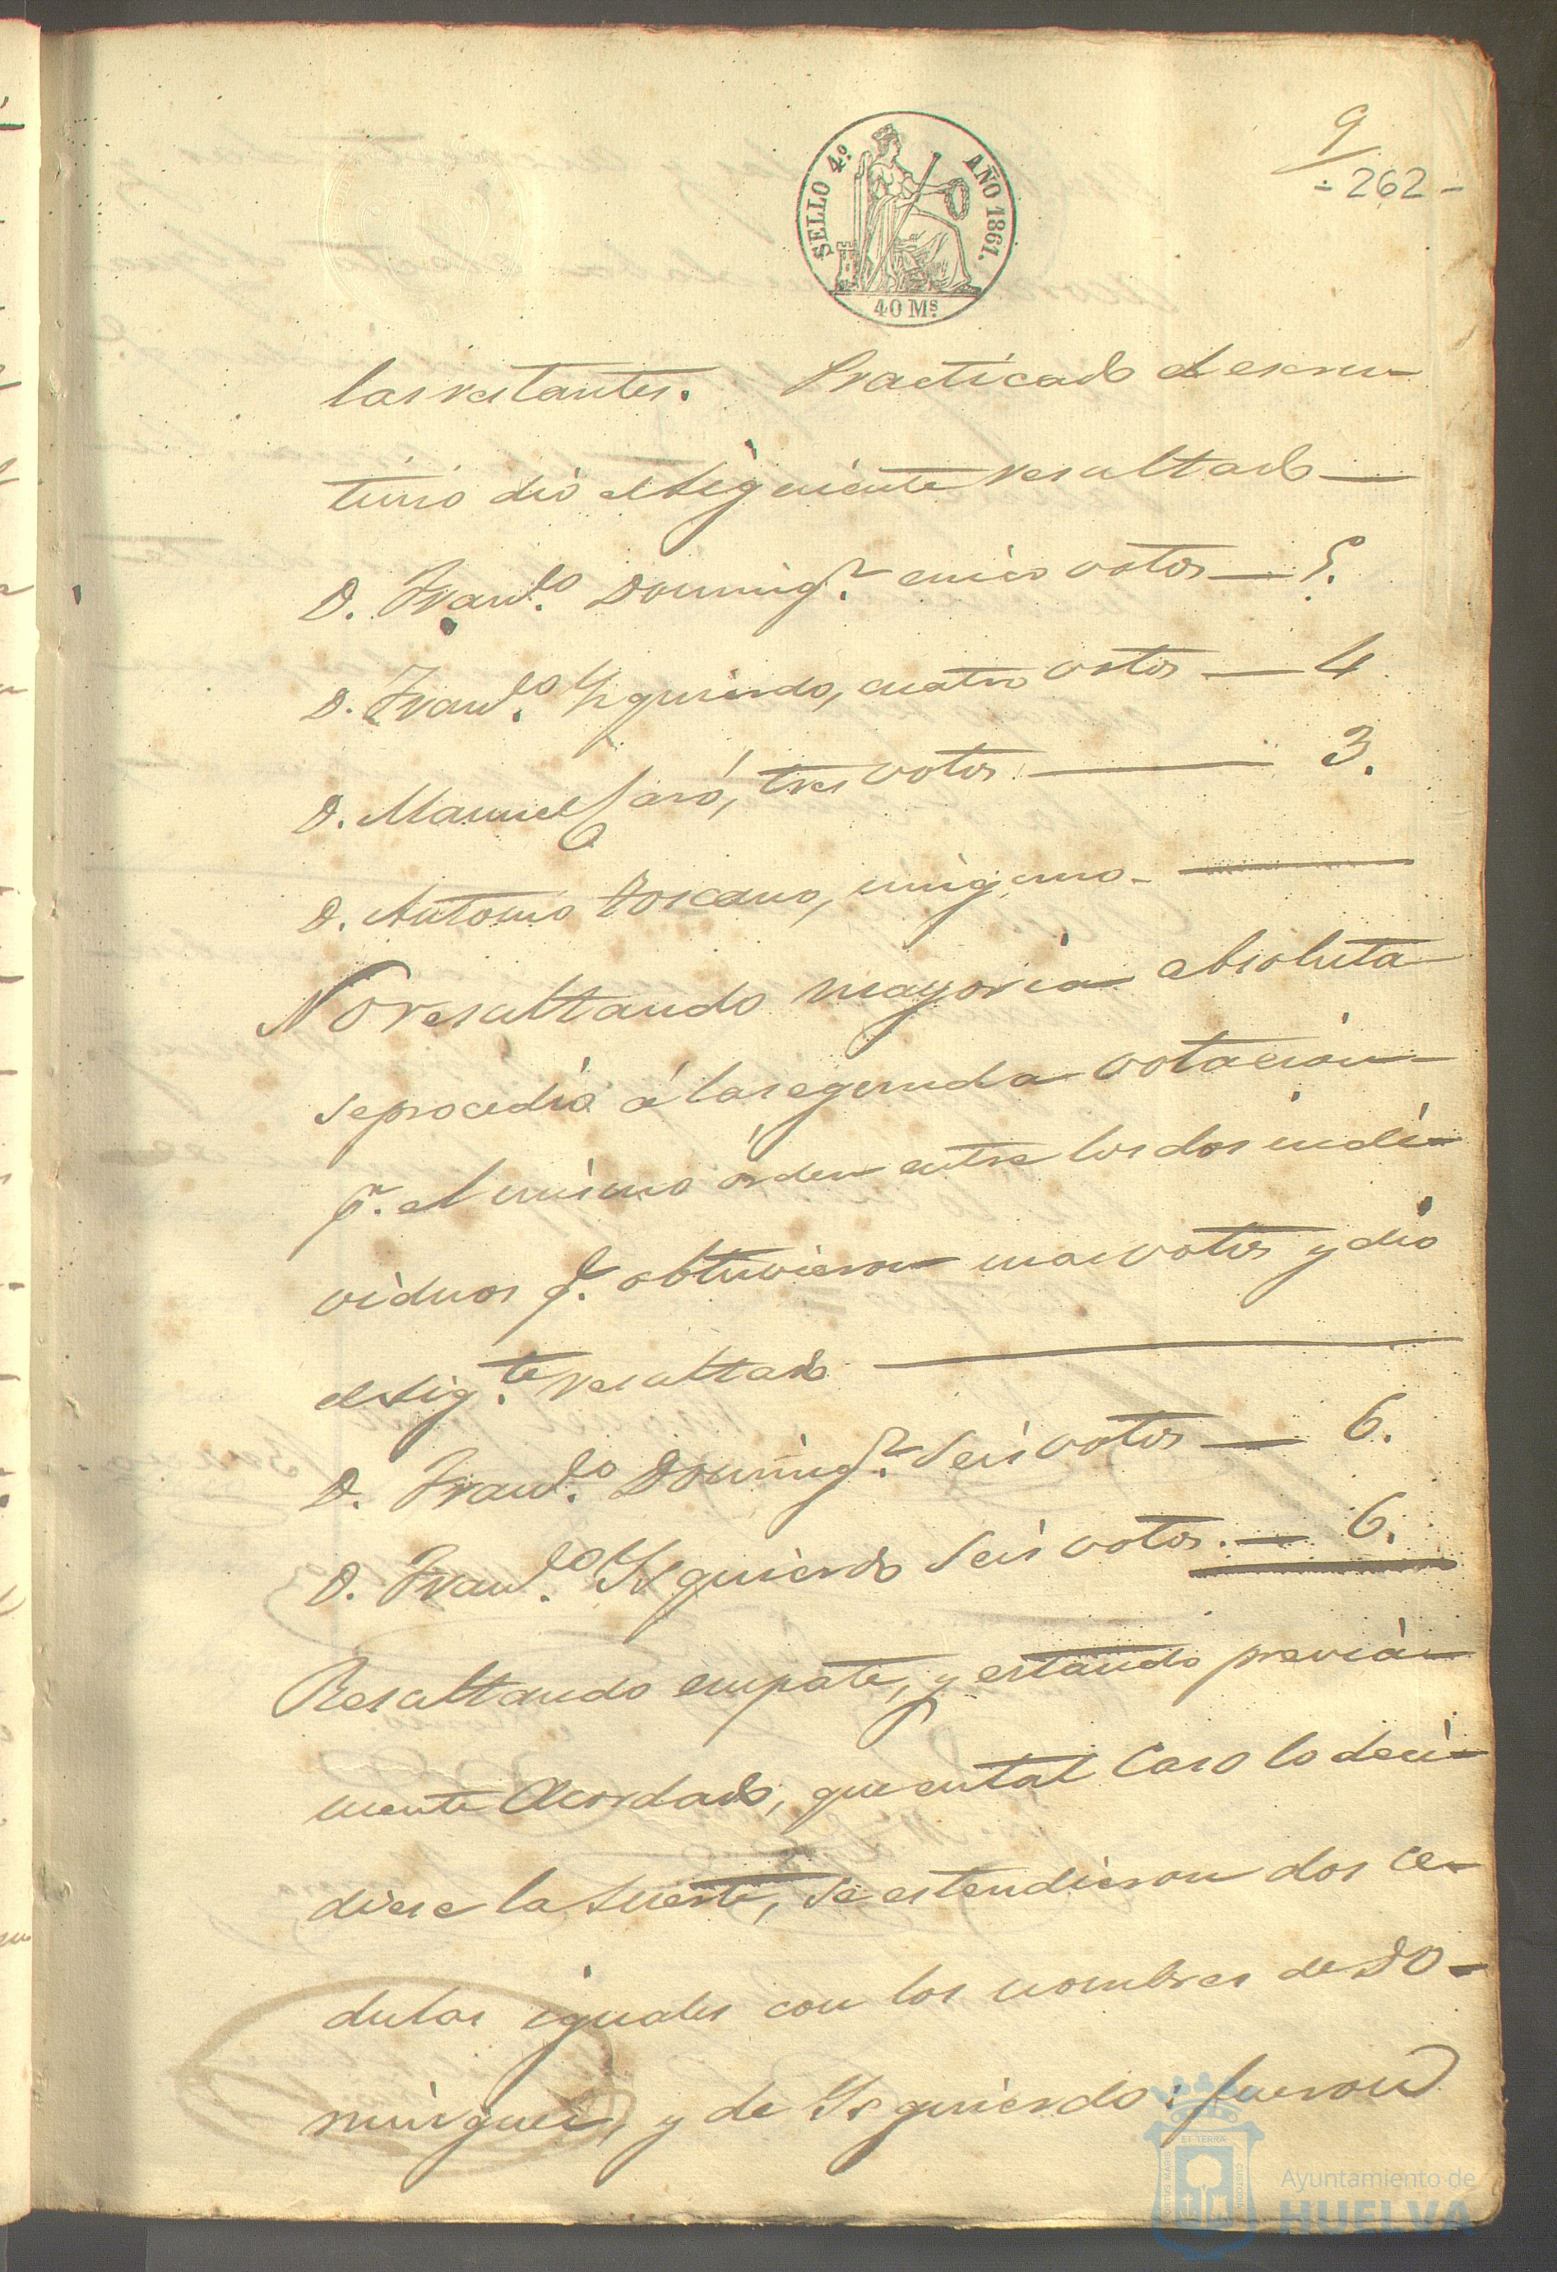 9
- 262 -
SELLO 4º. AÑO 1861.
40 Ms.
las restantes. Practicado el escru
tinio dió el siguiente resultado —
D. Franco. Domingz. cinco votos — 5.
D. Franco. Yzquierdo, cuatro votos — 4
D. Manuel Jaró, tres votos — 3.
D. Antonio Toscano, ninguno. —
No resultando mayoria absoluta
se procedió á la segunda votacion
pr. el mismo órden entre los dos indi
viduos q. obtuvieron mas votos y dió
el sigte. resultado —
D. Franco. Domingz. Seis votos — 6.
D. Franco. Yzquierdo Seis votos. — 6.
Resultando empate, y estando previa
mente acordado, que en tal caso lo deci
diese la suerte, se estendieron dos ce
dulas iguales con los nombres de Do-
minguez, y de Yzquierdo: fueron
ET TERRA
CUSTODIA
Ayuntamiento de
HUELVA